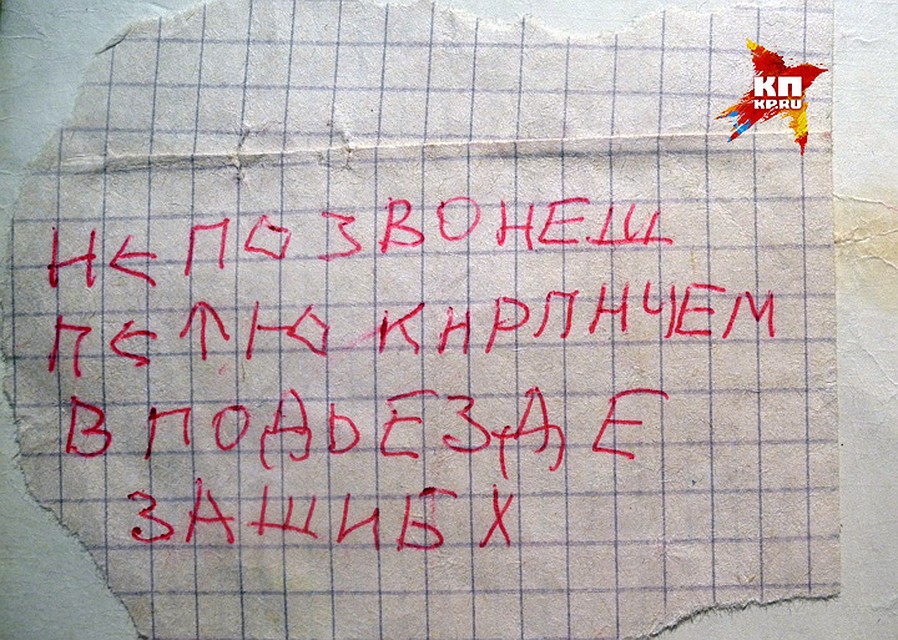 КП
KP.RU
НЕ ПОЗВОНЕШ
ПЕТЮ КИРПИЧЕМ
В ПОДЬЕЗДЕ
ЗАШИБ Х